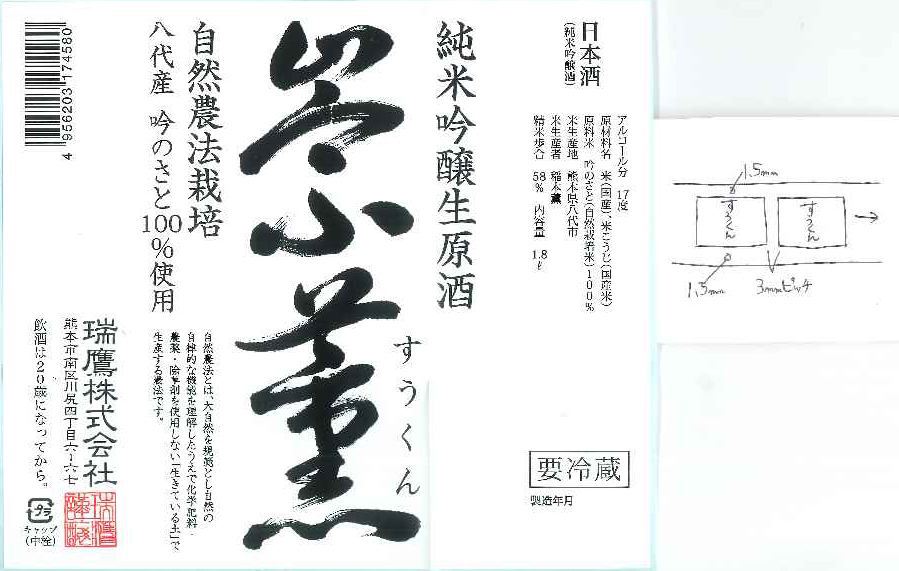 日本酒
(純米吟醸酒)
アルコール分 17度
原材料名 米(国産)、米こうじ(国産米)
原料米 吟のさと(自然栽培米)100%
米生産地 熊本県八代市
米生産者 稲本薫
精米歩合 58% 内容量 1.8ℓ
要冷蔵
製造年月
純米吟醸生原酒
崇薫
すうくん
自然農法栽培
八代産 吟のさと100%使用
自然農法とは、大自然を規範とし自然の
自律的な機能を理解したうえで化学肥料・
農薬・除草剤を使用しない「生きている土」で
生産する農法です。
瑞鷹株式会社
熊本市南区川尻四丁目六ー六七
飲酒は20歳になってから。
プラ
キャップ
(中栓)
4 956203 174580
1.5mm
すうくん
すうくん
1.5mm
3mmピッチ